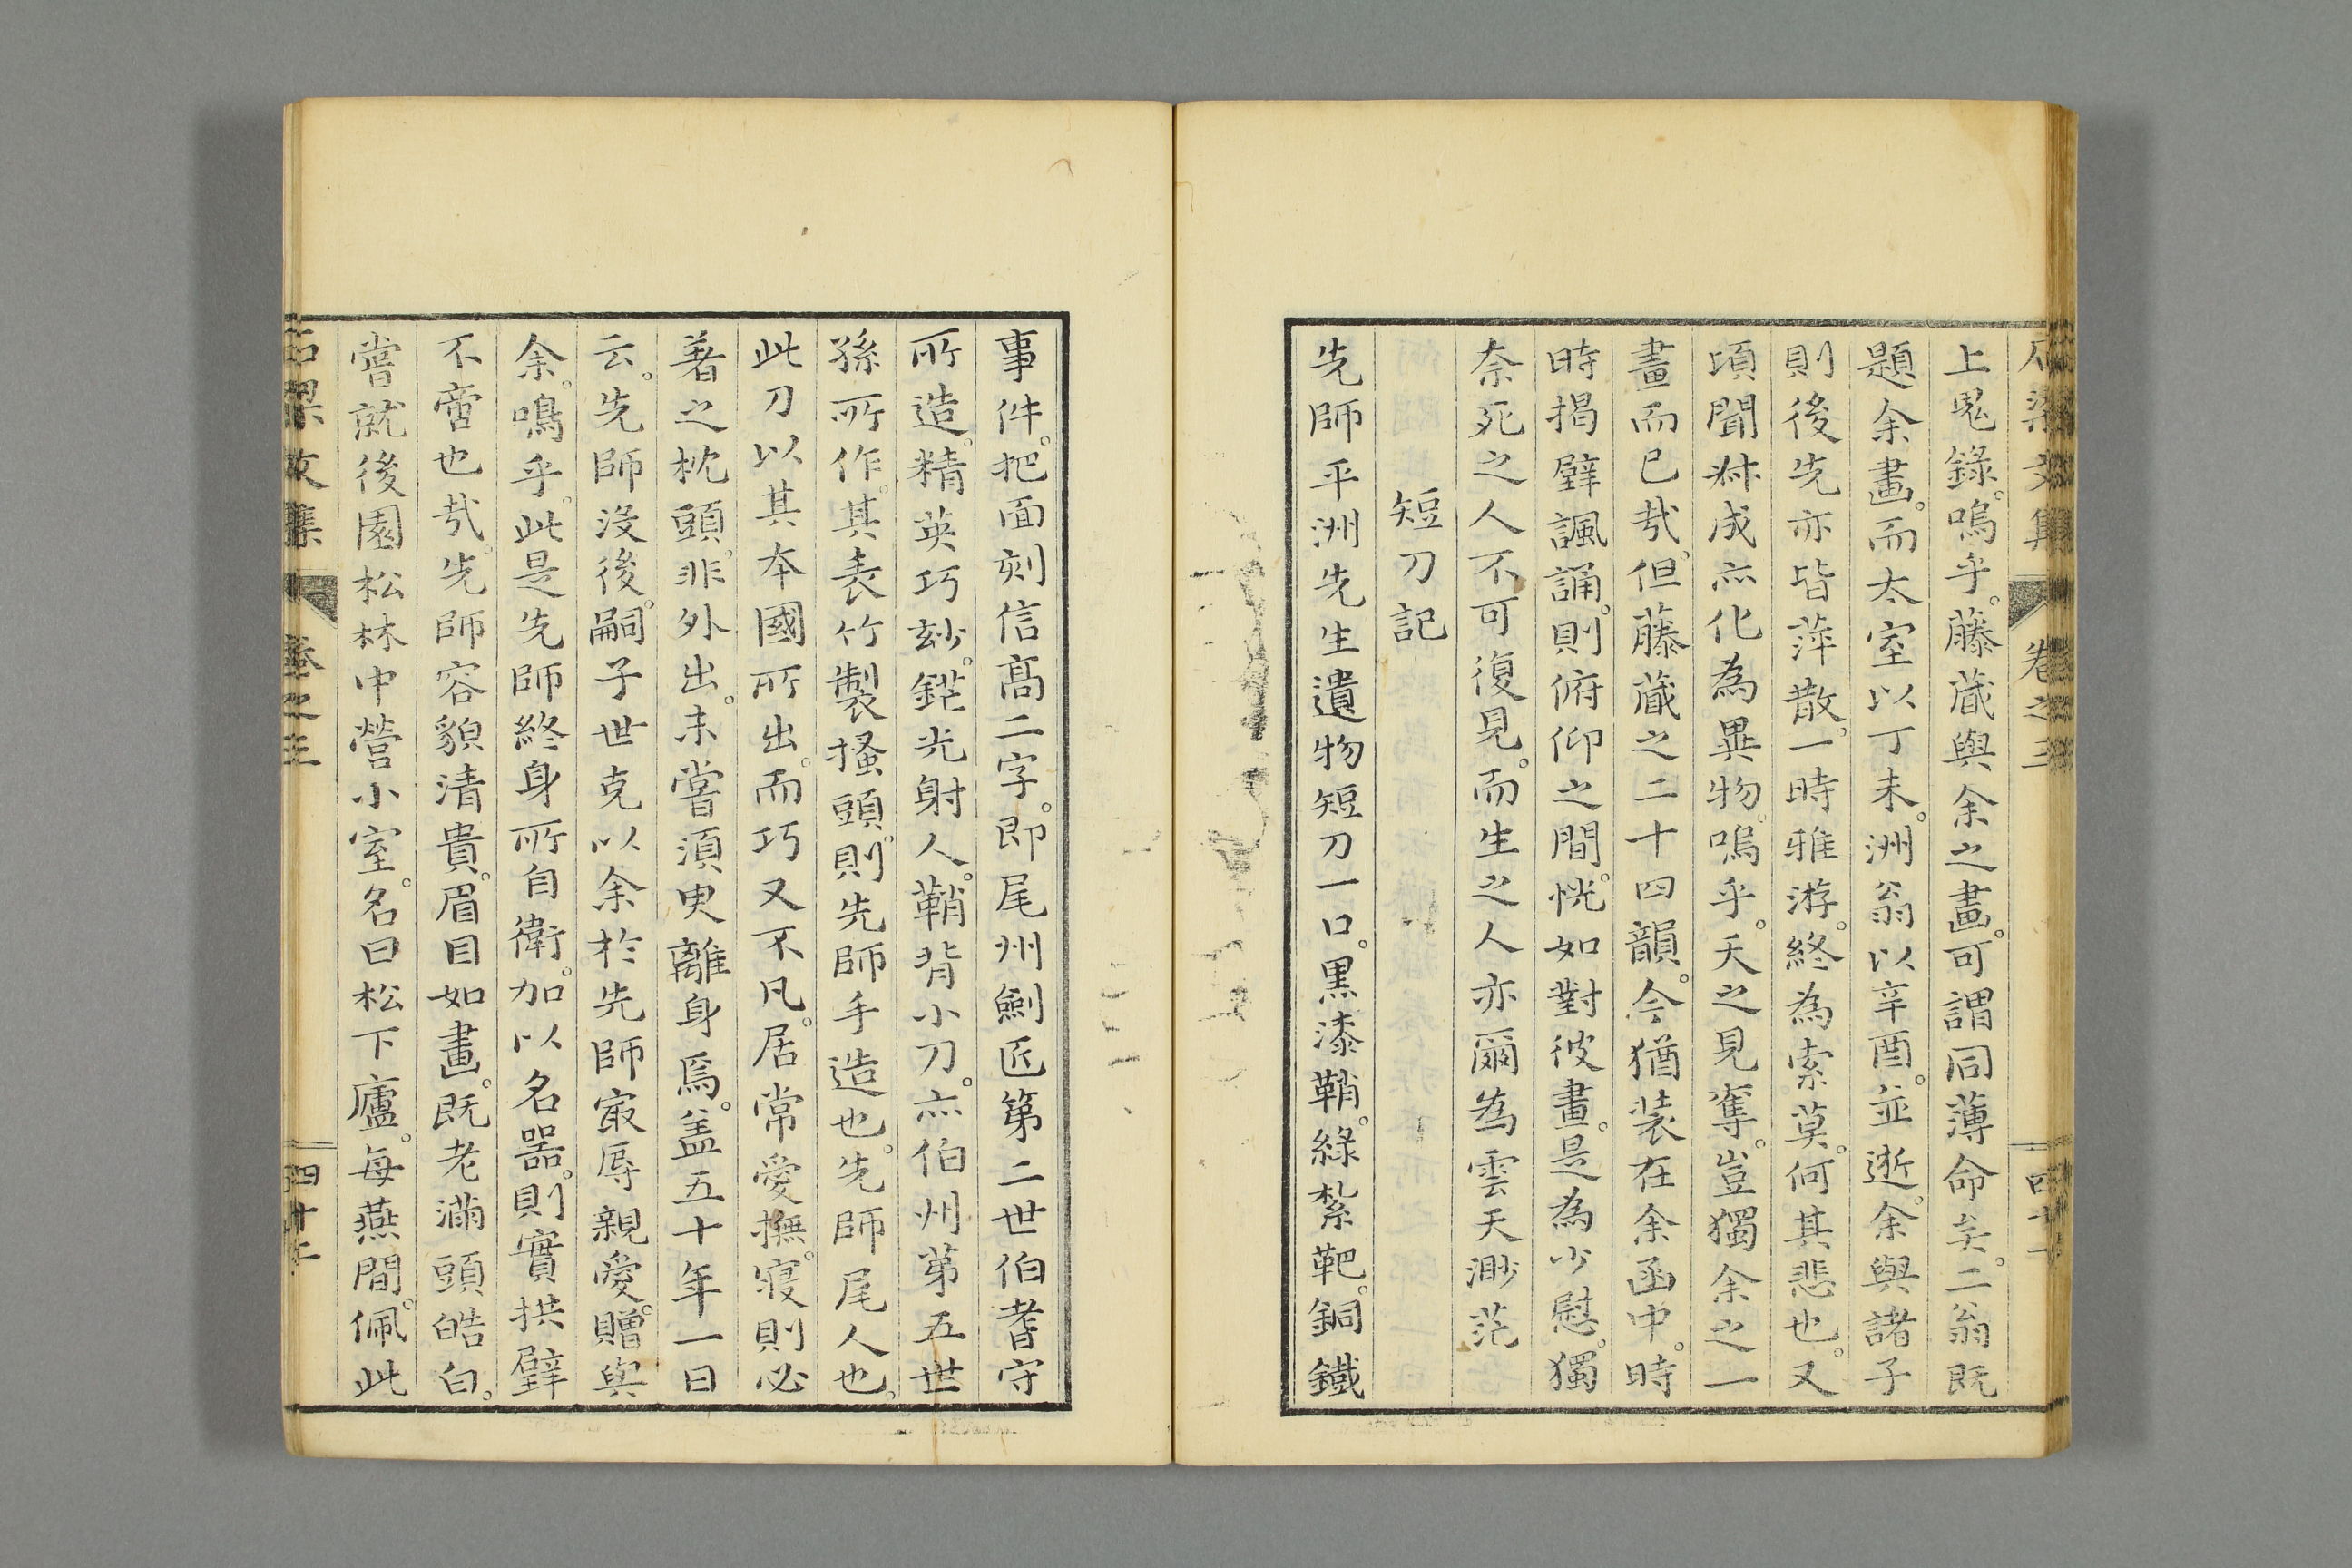 石梁文集 卷之三 四十一
上鬼錄。嗚乎。藤蔵與余之畫。可謂同薄命矣。二翁既
題余畫。而太室以丁未。洲翁以辛酉。並逝。余與諸子
則後先亦皆萍散。一時雅游。終為索莫。何其悲也。又
頃聞叔成亦化為異物。嗚乎。天之見奪。豈獨余之一
畫而已㢤。但藤蔵之二十四韻。今猶装在余函中。時
時揭壁諷誦。則俯仰之間。恍如對彼畫。是為少慰。獨
奈死之人不可復見。而生之人亦爾為雲天渺茫
短刀記
先師平洲先生遺物短刀一口。黒漆鞘。綠紮靶。銅鐵
事件。把面刻信髙二字。即尾州劍匠第二世伯耆守
所造。精英巧玅。鋩光射人。鞘背小刀。亦伯州第五世
孫所作。其表竹製搔頭。則先師手造也。先師尾人也。
此刀以其本國所出。而巧又不凡。居常愛撫。寢則必
著之枕頭。非外出。未嘗須臾離身焉。盖五十年一日
云。先師没後。嗣子世克以余於先師㝡辱親愛。贈與
余。鳴乎。此是先師終身所自衛。加以名噐。則實拱璧
不啻也㢤。先師容貌清貴。眉目如畫。既老滿頭皓白。
嘗就後園松林中營小室。名曰松下廬。每燕間。佩此
石梁文集 卷之三